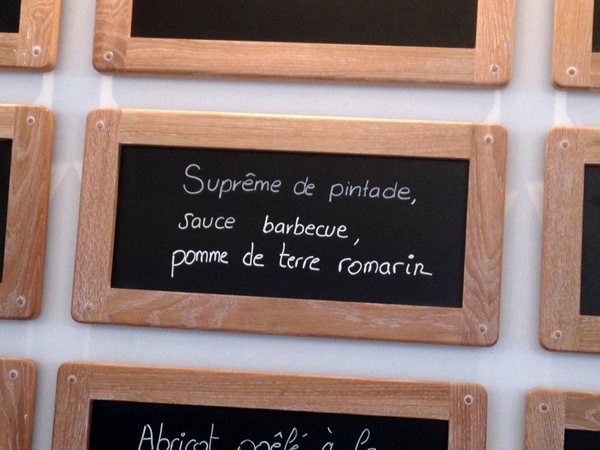 Suprême de pintade,
sauce barbecue,
pomme de terre romarin
Abricot poêlé à la